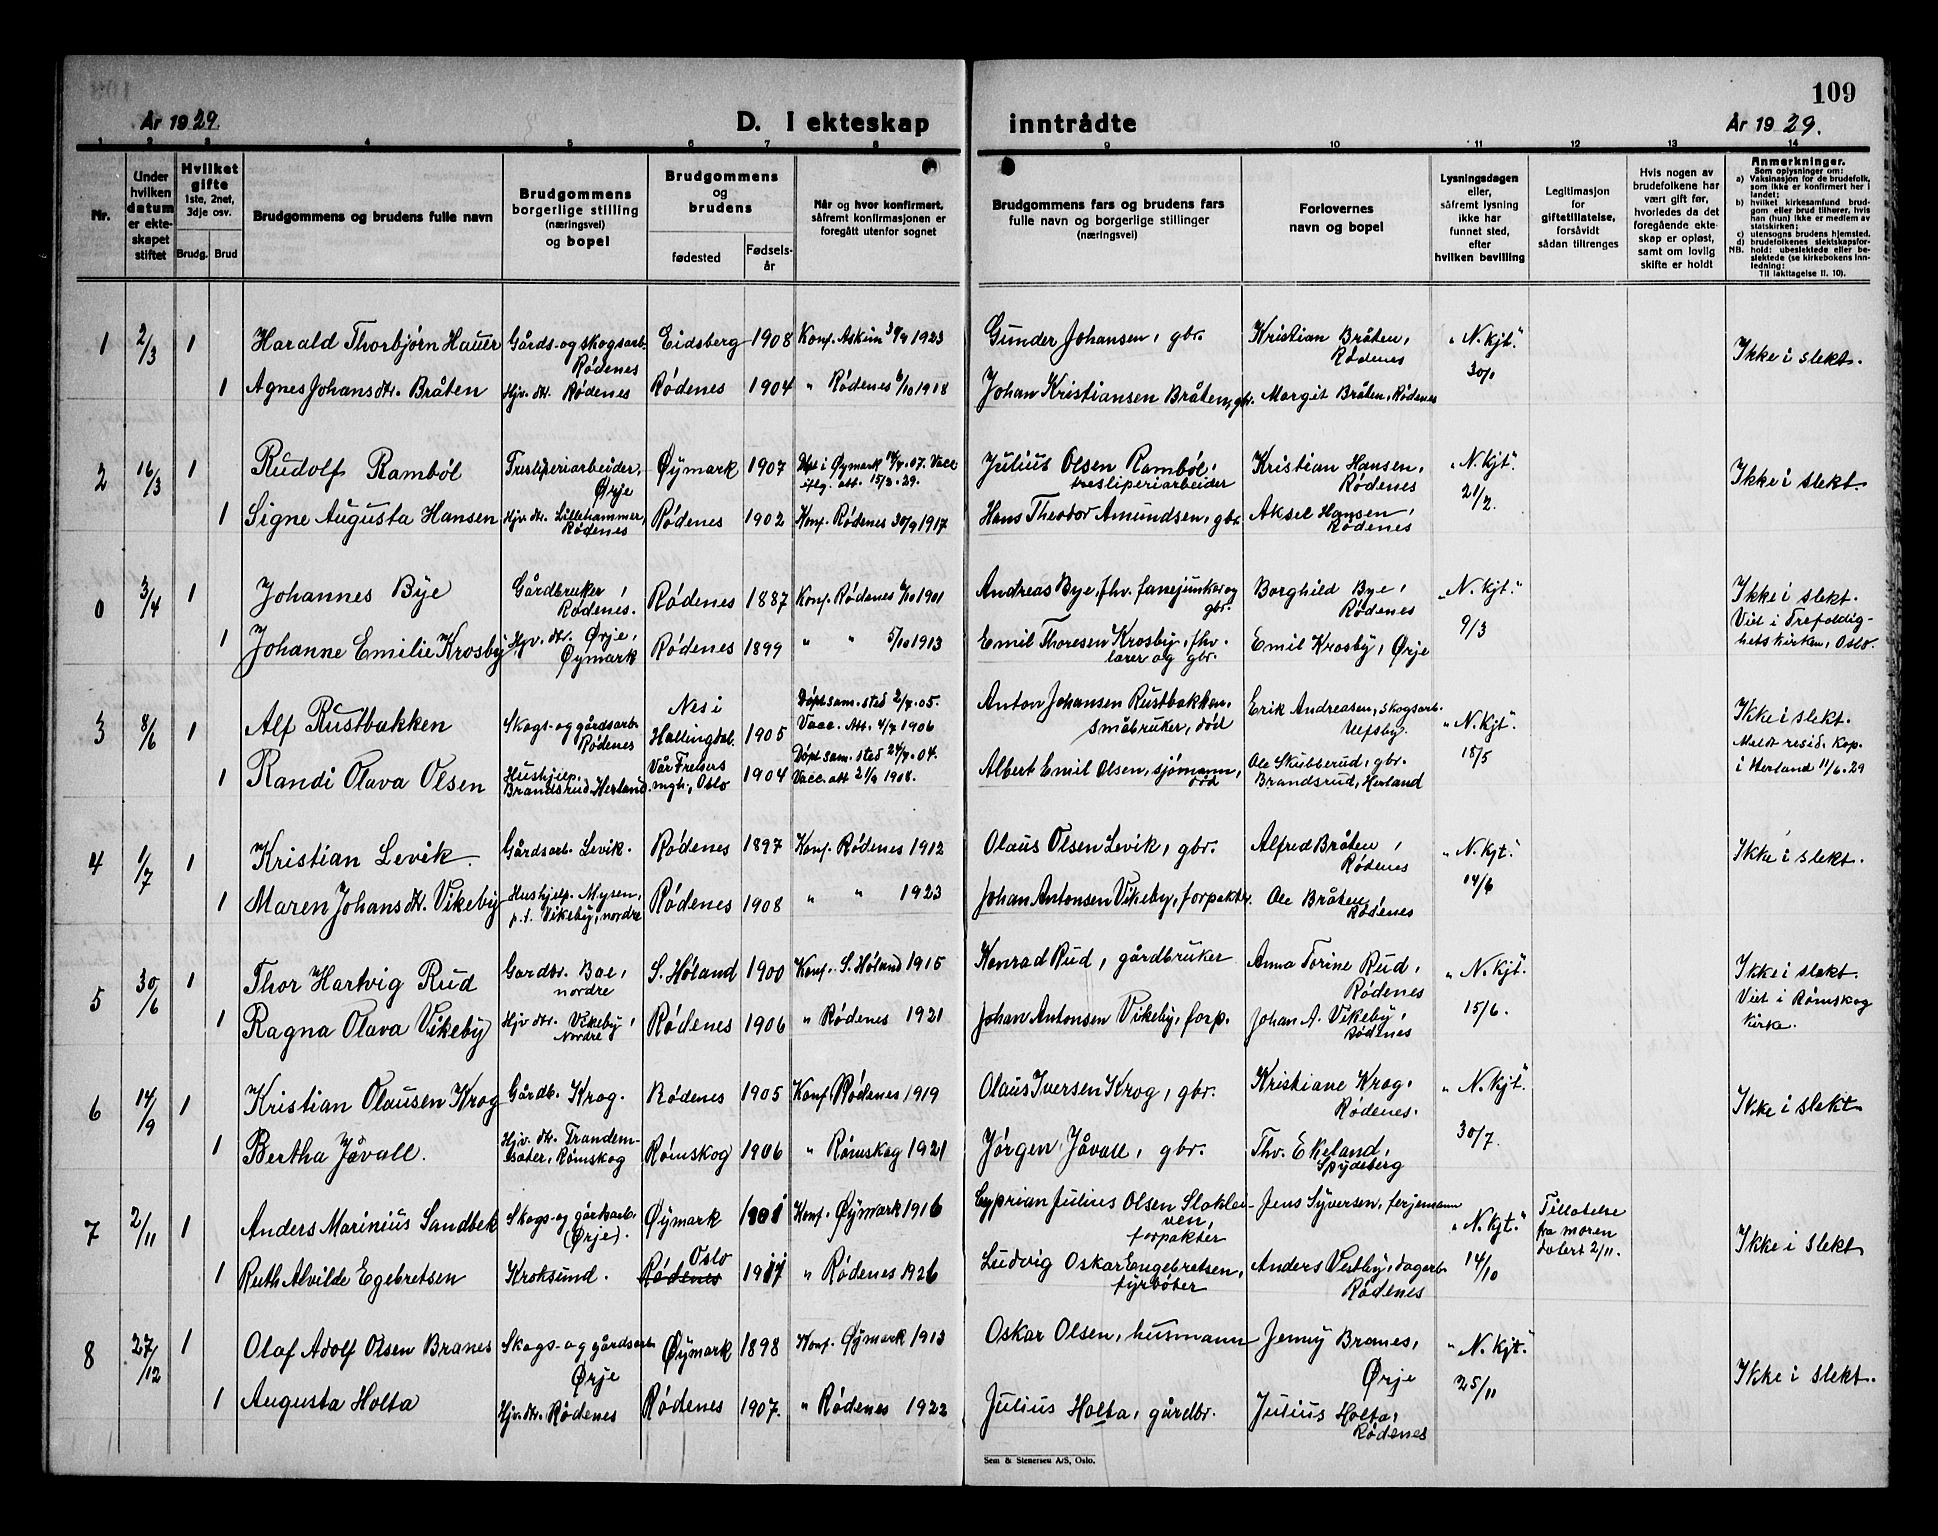 109
År 1929. D. I ekteskap inntrådte År 1929.
1 2 3 4 5 6 7 8 9 10 11 12 13 14
Nr.
Under hvilken datum er ekteskapet stiftet
Hvilket gifte 1ste, 2net, 3dje osv.
Brudg. Brud
Brudgommens og brudens fulle navn
Brudgommens borgerlige stilling (næringsvei) og bopel
Brudgommens og brudens
fødested
Fødselsår
Når og hvor konfirmert, såfremt konfirmasjonen er foregått utenfor sognet
Brudgommens fars og brudens fars fulle navn og borgerlige stillinger (næringsvei)
Forlovernes navn og bopel
Lysningsdagen eller, såfremt lysning ikke har funnet sted, efter hvilken bevilling
Legitimasjon for giftetillatelse, forsåvidt sådan tiltrenges
Hvis nogen av brudefolkene har vært gift før, hvorledes da det foregående ekteskap er opløst, samt om lovlig skifte er holdt
Anmerkninger.
Som oplysninger om:
a) Vaksinasjon for de brudefolk, som ikke er konfirmert her i landet;
b) hvilket kirkesamfund brudgom eller brud tilhører, hvis han (hun) ikke er medlem av statskirken;
c) utensogns brudens hjemsted.
d) brudefolkenes slektskapsforhold: ubeslektede eller beslektede (se kirkebokens innledning;
NB.
Til iakttagelse II. 10).
1 2/3 1 Harald Thorbjørn Hauer Gårds- og skogsarb. Rødenes Eidsberg 1908 Konf. Askim 1923 Gunder Johansen, gbr. Kristian Bråten, Rødenes "N. kjt." 30/1 Ikke i slekt.
1 Agnes Johansdtr. Bråten Hjv. dtr. Rødenes Rødenes 1904 " Rødenes 6/10 1918 Johan Kristiansen Bråten, gbr. Margit Bråten, Rødenes
2 16/3 1 Rudolf Rambøl Tresliperiarbeider, Ørje Øymark 1907 Døpt i Øymark 07. Vacc iflg. att. 15/3.29. Julius Olsen Rambøl, tresliperiarbeider Kristian Hansen, Rødenes "N. kjt." 21/2. Ikke i slekt.
1 Signe Augusta Hansen Hjv. dtr. Lillehammer, Rødenes Rødenes 1902 Konf. Rødenes 30/9 1917 Hans Theodor Amundsen, gbr. Aksel Hansen, Rødenes
0 3/4 1 Johannes Bye Gårdbruker, Rødenes. Rødenes 1887 Konf. Rødenes 1901 Andreas Bye, fhv. fanejunker og gbr. Borghild Bye, Rødenes "N. kjt." 9/3 Ikke i slekt. Viet i Trefoldighetskirken, Oslo.
1 Johanne Emilie Krosby Hjv. dtr. Ørje, Øymark Rødenes 1899 " " 5/10 1913 Emil Thoresen Krosby, fhv. lærer og gbr. Emil Krosby, Ørje
3 8/6 1 Alf Rustbakken Skogs- og gårdsarb. Rødenes Nes i Hallingdal. 1905 Døpt sam. sted 2/7.05. Vacc. Att. 4/7 1906 Anton Johansen Rustbakken, småbruker, død Erik Andreasen, skogsarb. Ulfsby. "N. kjt." 18/5 Ikke i slekt. Meldt resid. kap. i Herland 11/6.29
1 Randi Olava Olsen Hushjelp, Brandsrud, Herland. Vår Frelsers mgh., Oslo 1904 Døpt sam. sted 24/7.04. Vacc. att 1908. Albert Emil Olsen, sjømann, død Ole Skubberud, gbr. Brandsrud, Herland
4 1/7 1 Kristian Levik. Gårdsarb. Levik. Rødenes 1897 Konf. Rødenes 1912 Olaus Olsen Levik, gbr. Alfred Bråten, Rødenes "N. kjt." 14/6 Ikke i slekt.
1 Maren Johansdtr. Vikeby Hushjelp. Mysen, p.t. Vikeby, nordre Rødenes 1908 " " 1923 Johan Antonsen Vikeby, forpakter. Ole Bråten, Rødenes
5 30/6 1 Thor Hartvig Rud Gardbr. Boe, nordre S. Høland 1900 Konf. S. Høland 1915 Konrad Rud, gårdbruker Anna Torine Rud, Rødenes "N. kjt." 15/6. Ikke i slekt. Viet i Rømskog kirke.
1 Ragna Olava Vikeby Hjv dtr. Vikeby, Nordre Rødenes 1906 " Rødenes 1921 Johan Antonsen Vikeby, forp. Johan A. Vikeby, Rødenes
6 14/9 1 Kristian Olausen Krog Gårdb. Krog. Rødenes 1905 Konf. Rødenes 1919 Olaus Iversen Krog, gbr. Kristiane Krog, Rødenes. "N. kjt." 30/7. Ikke i slekt
1 Bertha Jåvall. Hjv. dtr. Trandemsæter, Rømskog Rømskog 1906 " Rømskog 1921 Jørgen Jåvall, gbr. Thv. Ekeland, Spydeberg
7 2/11 1 Anders Marinius Sandbek Skogs- og gårdsarb. (Ørje). Øymark 1901 Konf. Øymark 1916 Cyprian Julius Olsen Slokleiven, forpakter Jens Syversen, ferjemann "N. kjt." 14/10 Tillatelse fra moren datert 2/11. Ikke i slekt
1 Ruth Alvilde Egebretsen Kroksund. Rødenes Oslo 1911 " Rødenes 1926 Ludvig Oskar Engebretsen, fyrbøter Anders Vestby, dagarb. Rødenes
8 27/12 1 Olaf Adolf Olsen Branes Skogs- og gårdsarb Ørje Øymark 1898 Konf. Øymark 1913 Oskar Olsen, husmann Jenny Branes, Ørje "N. kjt." 25/11 Ikke i slekt.
1 Augusta Holta Hjv. dtr. Rødenes Rødenes 1907. " Rødenes 1922 Julius Holta, gårdbr. Julius Holta, Rødenes
Sem & Stenersen A/S, Oslo.